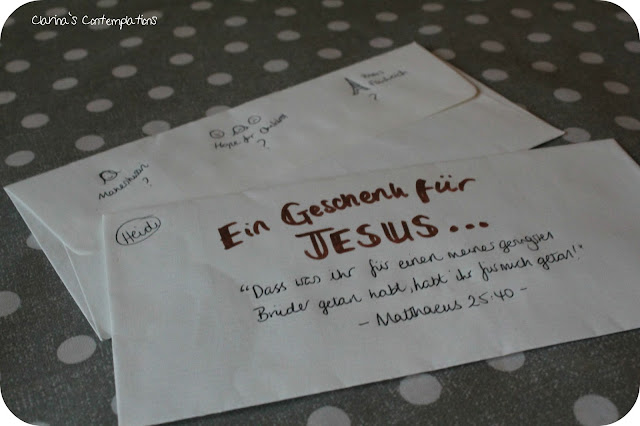 Clarina's Contemplations
?
Hope for Children
?
?
Heidi
Ein Geschenk für
JESUS...
"Dass was ihr für einen meiner geringsten
Brüder getan habt, habt ihr für mich getan!"
- Matthaeus 25:40 -